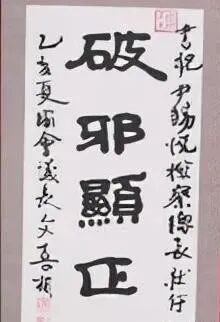 書祝尹錫悅檢察總長壯行
破邪顯正
己亥夏國會議長文喜相